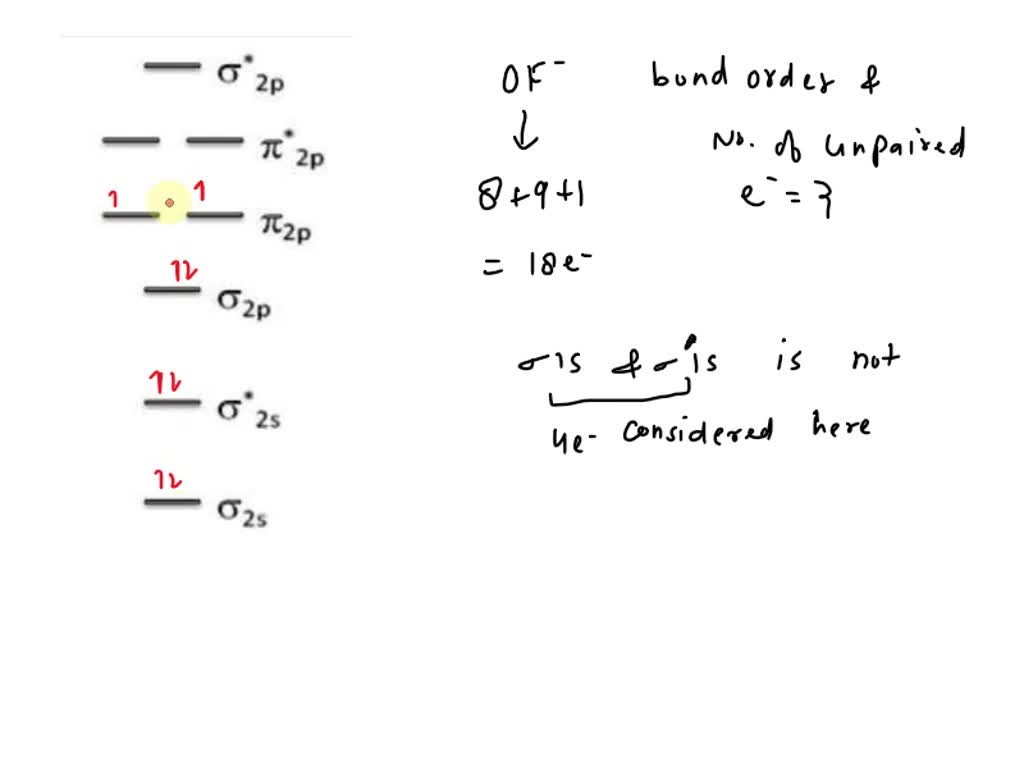 σ*2p
π*2p
1 1
π2p
1L
σ2p
1L
σ*2s
1L
σ2s
OF⁻ bond order &
No. of unpaired
e⁻ = ?
↓
8+9+1
= 18e⁻
σ1s & σ*1s is not
4e- considered here